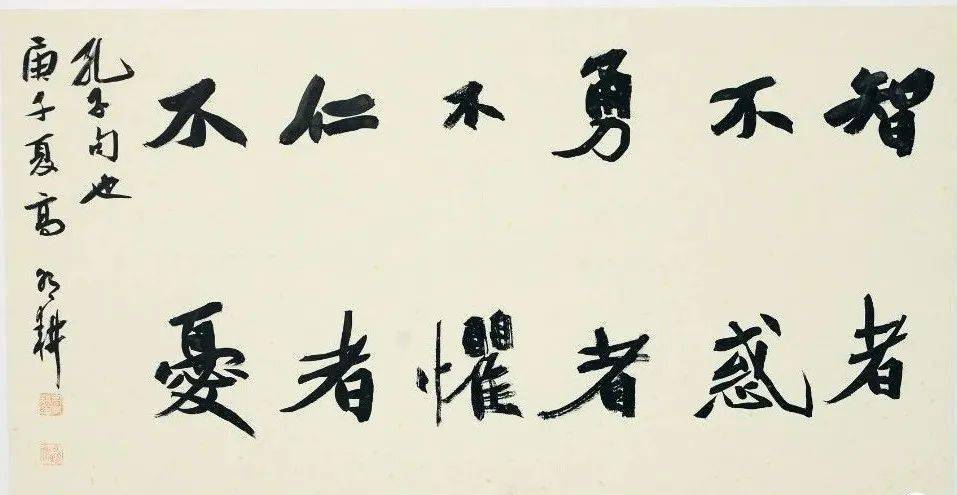 智者
不惑
勇者
不懼
仁者
不憂
孔子句也
庚子夏高耕